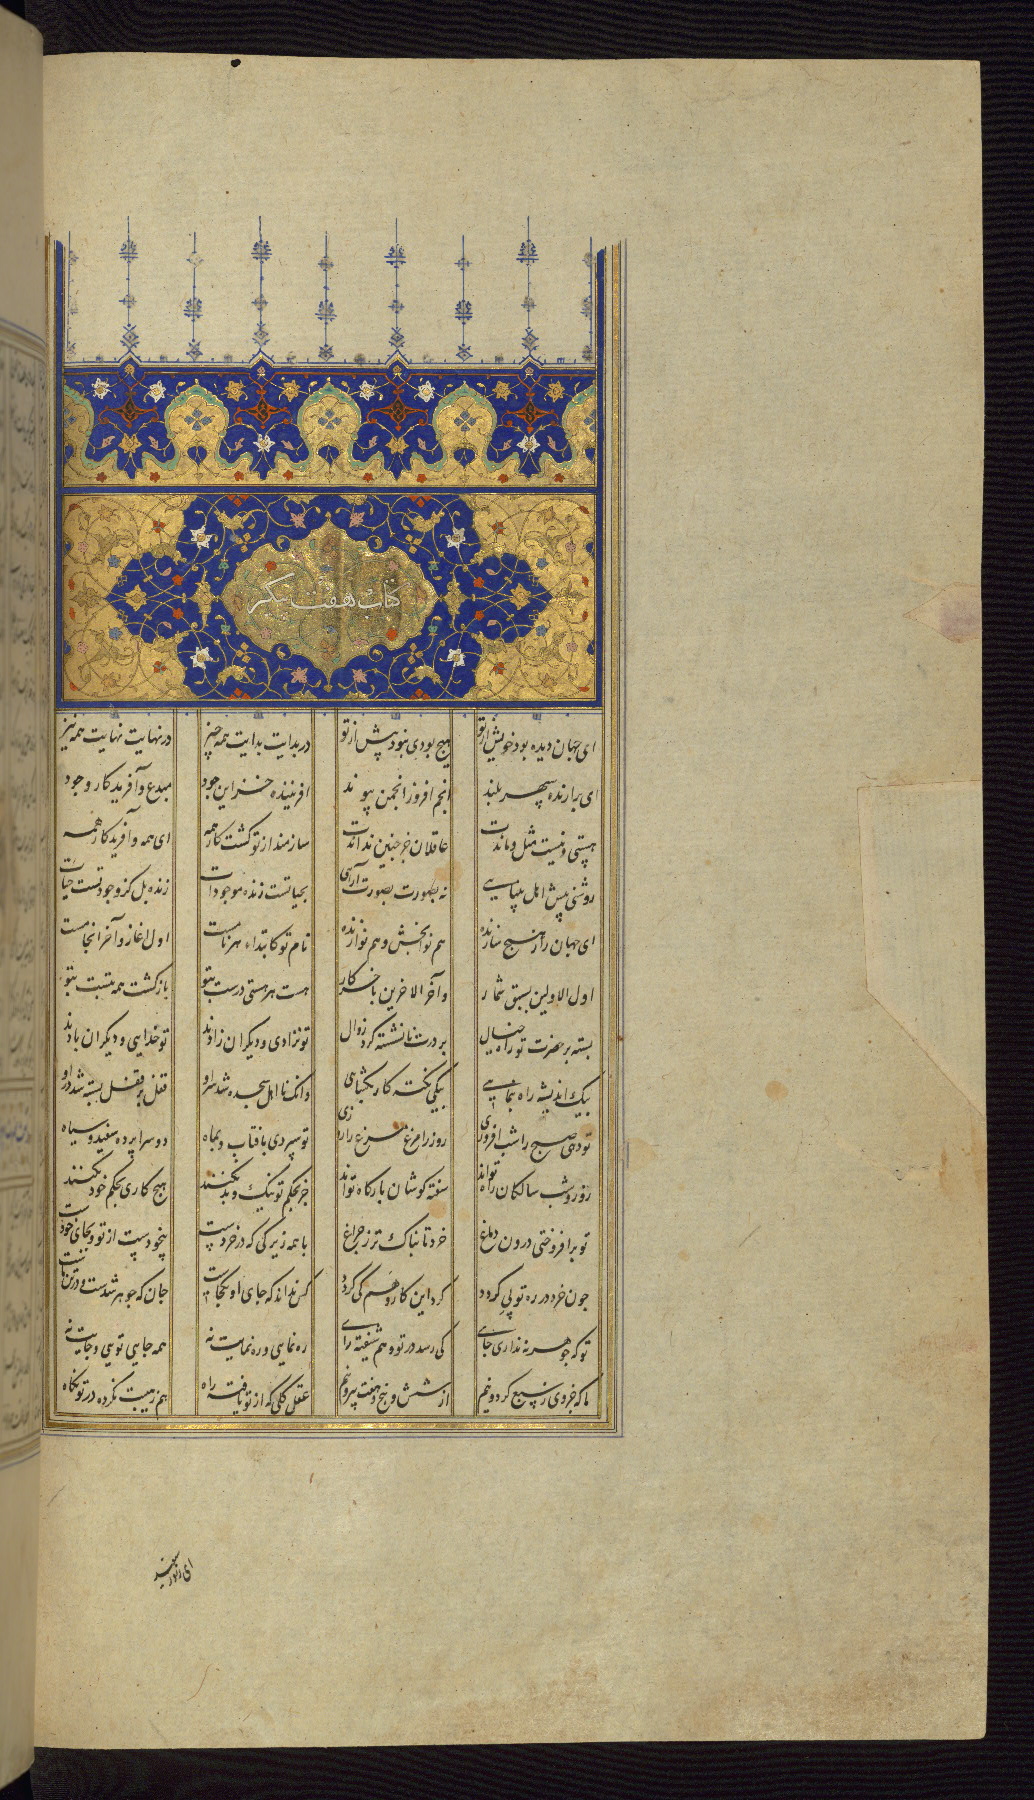 کتاب هفت پیکر
ای جهان دیده بود خویش از تو هیچ بودی نبود پیش از تو در بدایت بدایت همه چیز در نهایت نهایت همه چیز
ای برارنده سپهر بلند انجم افروز انجمن پیوند افریننده خزاین جود مبدع و آفریدکار وجود
هستی و نیست مثل و مانندت عاقلان جز چنین ندانندت سازمند از تو کشت کار همه ای همه و آفریدکار همه
روشنی پیش اهل بینایی نه بصورت بصورت آرایی بحیاتست زنده موجودات زنده بل کز وجود تست حیات
ای جهان را ز هیچ سازنده هم نوابخش و هم نوازنده نام تو کابتداء هر نامست اول اغاز و آخر انجامست
اول الاولین بسبق شمار و آخر الاخرین باخر کار هست هر هستی درست بتو بازکشت همه بتست بتو
بسته بر حضرت تو راه خیال بر درت نانشسته کرد زوال تو نزادی و دیکران زادند تو خدایی و دیکران بادند
بیک اندیشه راه بنمایی بیکی نکته کار بکشایی وانک نااهل سجده شد سر او قفل بر قفل بسته شد در او
تو دهی صبح را شب افروزی روز را مرغ و مرغ را روزی تو سپردی بافتاب و بماه دو سرا پرده سفید و سیاه
روز و شب سالکان راه تواند سفته کوشان بارکاه تواند جز بحکم تو نیک و بد نکنند هیچ کاری بحکم خود نکنند
تو برافروختی درون دماغ خرد تابناک تر ز چراغ با همه زیرکی که در خردست بیخودست از تو و بجای خودست
چون خرد در ره تو پی کردد کرد این کار وهم کی کردد کس نداند که جای او بکجاست جان که جوهر شدست و در تن ماست
تو که جوهر نه نداری جای کی رسد در تو وهم شیفته رای ره نمایی و ره نمایت نه همه جایی تویی و جایت نه
ما که جزوی ز سبع کردونیم از شش و پنج و هفت بیرونیم عقل کلی که از تو یافته راه هم ز هیبت نکرده در تو نکاه
ای ز